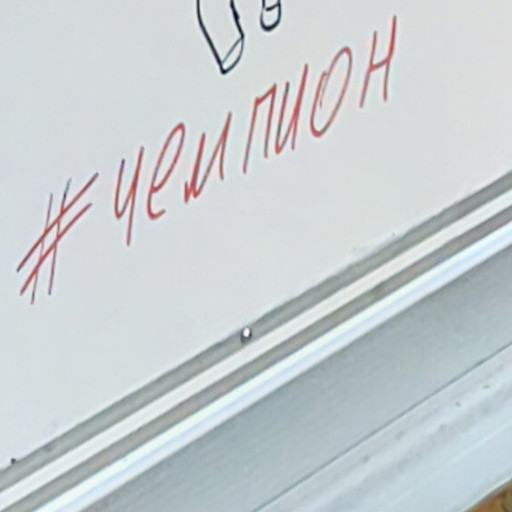 #чемпион